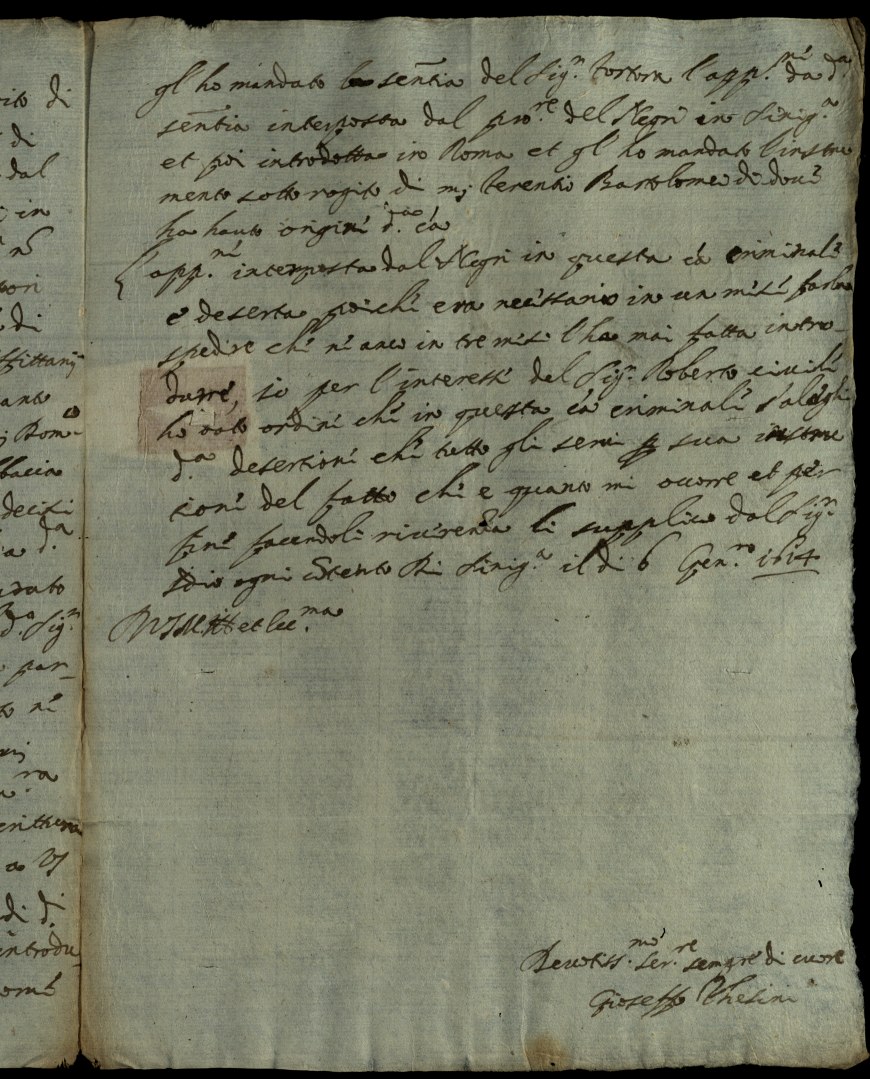 gl ho mandato la sentia del Sig.re Tortora l'app.ne da d.a
sentia interposta dal pro.re del Negri in Sinig.a
et poi introdotta in Roma et gl ho mandato l'instru
mento sotto rogito di mj Terentio Bartolomei di dove
ha hauto origine d.a ca
l'app.ne interposta dal Negri in questa ca criminale
e deserta poiche era necessario in un mese farla
spedire che ne anco in tre mesi l'ha mai fatta intro-
durre, io per l'interesse del Sig.re Roberto civile
ho dato ordine che in questa ca criminale s'aleghi
d.a desertione che tutto gli servi p sua
tione del fatto che e quanto mi occorre et per
fine facendoli riverentia li supplico dal Sig.re
Idio ogni Di Sinig.a il di 6 Gen.ro 1614
Di VS M. Ill et ecc.ma
Devotiss.mo ser.re sempre di cuore
Gioseffo
ito di
di
dal
in
di
ante
decisi
a d.a
d.a Sig.
par-
ne
ra
a VS
di d.
introdu